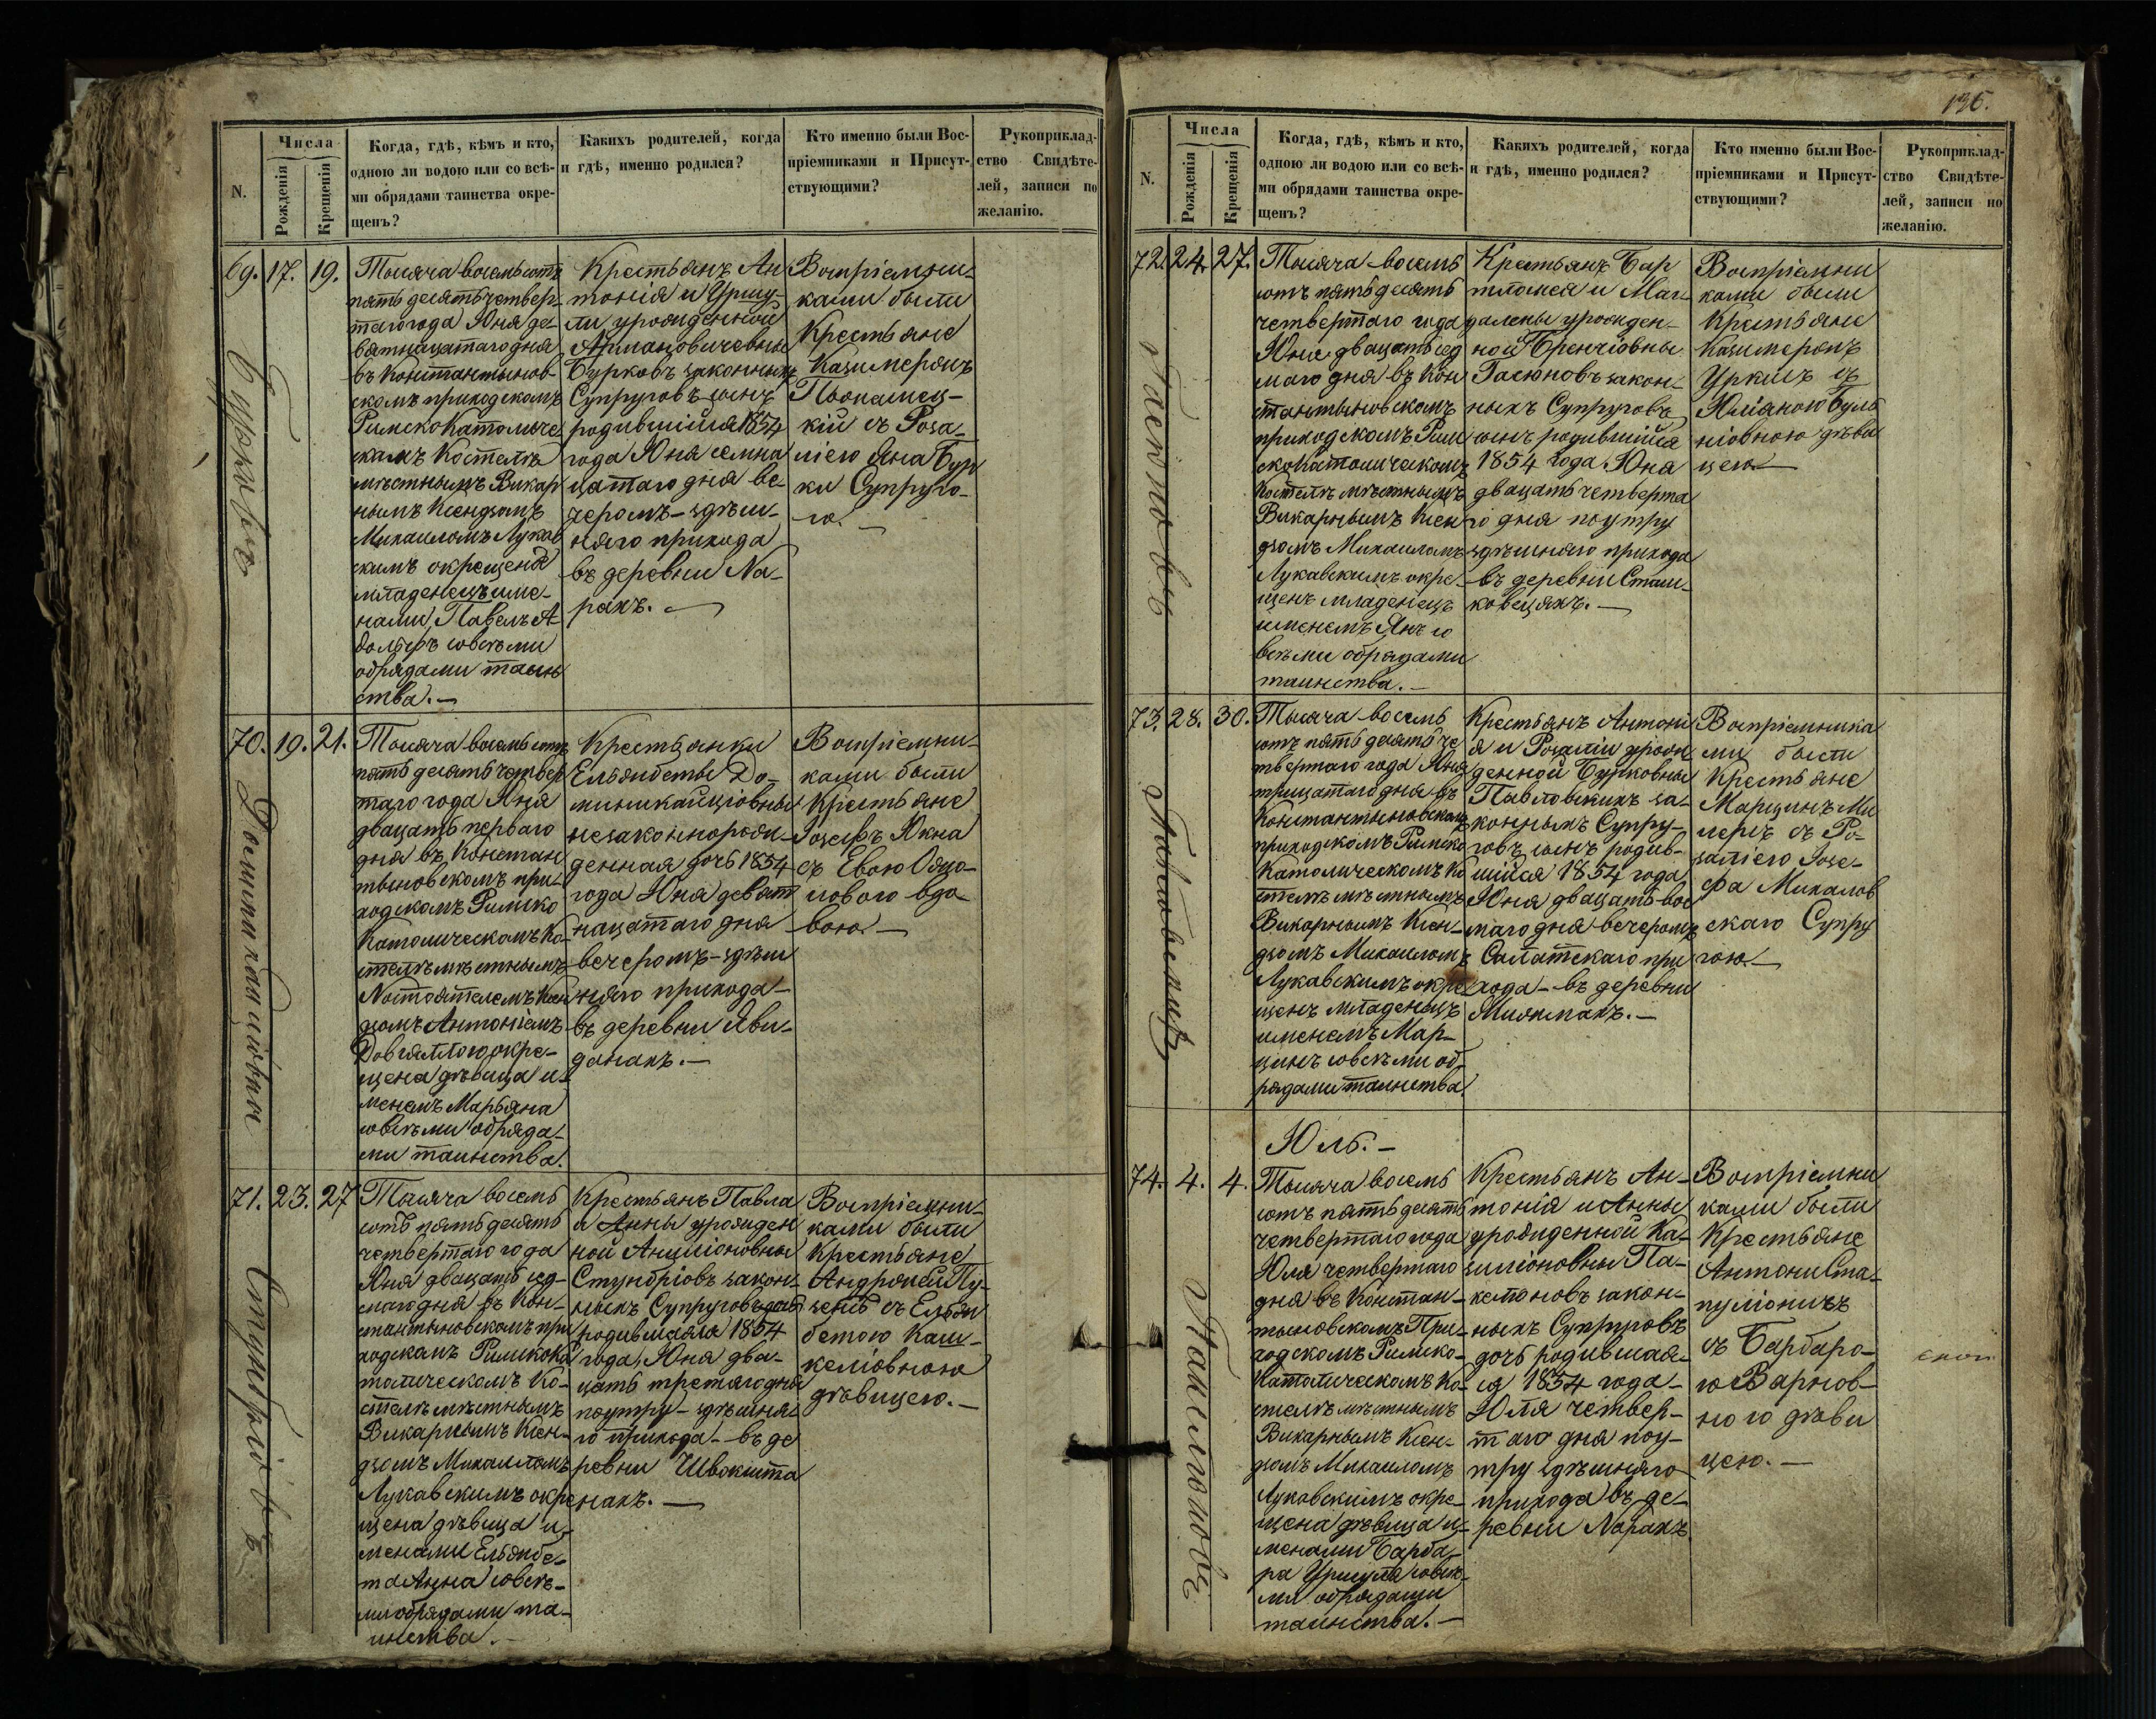 N.
Числа
Рожденія
Крещенія
Когда, гдѣ, кѣмъ и кто,
одною ли водою или со всѣ-
ми обрядами таинства окре-
щенъ?
Какихъ родителей, когда
и гдѣ, именно родился?
Кто именно были Вос-
пріемниками и Присут-
ствующими?
Рукоприклад-
ство Свидѣте-
лей, записи по
желанію.
69. 17. 19.
Тысяча восемь сотъ
пять десять четвер-
таго года Юня де-
вятнацатаго дня
въ Константинов-
скомъ приходскомъ
Римско Католиче
скамъ Костелѣ
мѣстнымъ Викар
нымъ Ксендзомъ
Михаиломъ Лукав
скимъ окрещенъ
младенецъ име-
нами Павелъ А
дольфъ совсѣми
обрядами таин
ства.—
Крестьянъ Ан
тонія и Уршу-
ли урожденной
Бурковъ законныхъ
Супруговъ сынъ
родившійся 1854
года Юня семна
цатаго дня ве
черомъ - здѣш-
няго прихода
въ деревни На-
рахъ.—
Воспріемни-
ками были
Крестьяне
Казимеръ
кій съ Роза-
ліею Яна Бур
ки Супруго-
ю.—
70. 19. 21.
Тысяча восемь сотъ
пять десять четвер
таго года Юня
двацать перваго
дня въ Констан
тыновскомъ при-
ходскомъ Римско
Католическомъ Ко-
стелѣ мѣстнымъ
Настоятелемъ Ксен
дзомъ Антоніемъ
Довгялло окре-
щена дѣвица и-
менемъ Марьяна
совсѣми обряда-
ми таинства.
Крестьянки
Ельжбеты До-
миникайціовны
незаконнорож-
денная дочь 1854
года Юня девят
нацатаго дня
вечеромъ - здѣш
няго прихода-
въ деревни Яви-
данахъ.—
Воспріемни-
ками были
Крестьяне
Іозефъ Юкна
съ Евою
вдо-
вою.—
71. 23. 27
Тысяча восемь
сотъ пять десять
четвертаго года
Юня двацать сед-
маго дня въ Кон-
стантыновскомъ при
ходскомъ Римско Ка
толическомъ Ко-
стелѣ мѣстнымъ
Викарнымъ Ксен-
дзомъ Михаиломъ
Лукавскимъ окре
щена дѣвица и-
менами Ельжбе-
та Анна совсѣ-
ми обрядами та-
инства.—
Крестьянъ Павла
и Анны урожден
ной Анціоновны
Стунбріовъ закон-
ныхъ Супруговъ дочь
родившаяся 1854
года, Юня два-
цать третяго дня
поутру - здѣшня-
го прихода - въ де
ревни Швокшта
нахъ.—
Воспріемни-
ками были
Крестьяне
съ Ельжбетою
Каш-
келіовною
дѣвицею.—
136.
N.
Числа
Рожденія
Крещенія
Когда, гдѣ, кѣмъ и кто,
одною ли водою или со всѣ-
ми обрядами таинства окре-
щенъ?
Какихъ родителей, когда
и гдѣ, именно родился?
Кто именно были Вос-
пріемниками и Присут-
ствующими?
Рукоприклад-
ство Свидѣте-
лей, записи по
желанію.
72. 24. 27.
Гасюновъ
Тысяча восемь
сотъ пять десять
четвертаго года
Юня двацать сед
маго дня въ Кон
стантыновскомъ
приходскомъ Рим
ско Католическомъ
Костелѣ мѣстнымъ
Викарнымъ Ксен
дзомъ Михаиломъ
Лукавскимъ окре-
щенъ младенецъ
именемъ Янъ со
всѣми обрядами
таинства.—
Крестьянъ Бар
тломея и Маг
далены урожден-
ной Бренчіовны
Гасюновъ закон-
ныхъ Супруговъ
сынъ родившійся
1854 года Юня
двацать четверта
го дня поутру
здѣшняго прихода
въ деревни Сташ-
ковщахъ.—
Воспріемни
ками были
Крестьяне
Казимеръ
съ
Юліаною Буль
ніовною дѣви
цею.—
73. 28. 30.
Тысяча восемь
сотъ пять десять че
твертаго года Юня
трицатаго дня въ
Константыновскомъ
приходскомъ Римско
Католическомъ Ко
стелѣ мѣстнымъ
Викарнымъ Ксен-
дзомъ Михаиломъ
Лукавскимъ окре
щенъ младенецъ
именемъ Мар-
цинъ совсѣми об-
рядами таинства.
Крестьянъ Антоні
я и Розаліи урожд
денной Бурковны
Павловскихъ за-
конныхъ Супру-
говъ сынъ родив-
шійся 1854 года
Юня двацать вос
маго дня вечеромъ
при
хода - въ деревни
Воспріемника
ми были
Крестьяне
Марцинъ
съ Ро-
заліею Іозе-
фа Михалов
скаго Супру
гою.—
Юль.—
74. 4. 4.
Тысяча восемь
сотъ пять десять
четвертаго года
Юля четвертаго
дня въ Констан-
тыновскомъ При-
ходскомъ Римско-
Католическомъ Ко-
стелѣ мѣстнымъ
Викарнымъ Ксен-
дзомъ Михаиломъ
Лукавскимъ окре-
щена дѣвица и-
менами Барба-
ра Уршуля совсѣ-
ми обрядами
таинства.—
Крестьянъ Ан-
тонія и Анны
урожденной Ка-
зиліоновны Па-
кетоновъ закон-
ныхъ Супруговъ
дочь родившая-
ся 1854 года-
Юля четвер-
таго дня поу-
тру здѣшняго
прихода въ де-
ревни Нарахъ
Воспріемни
ками были
Крестьяне
Антони Ста-
пуліонисъ
съ Барбаро-
ю Варнов-
ною дѣви
цею.—